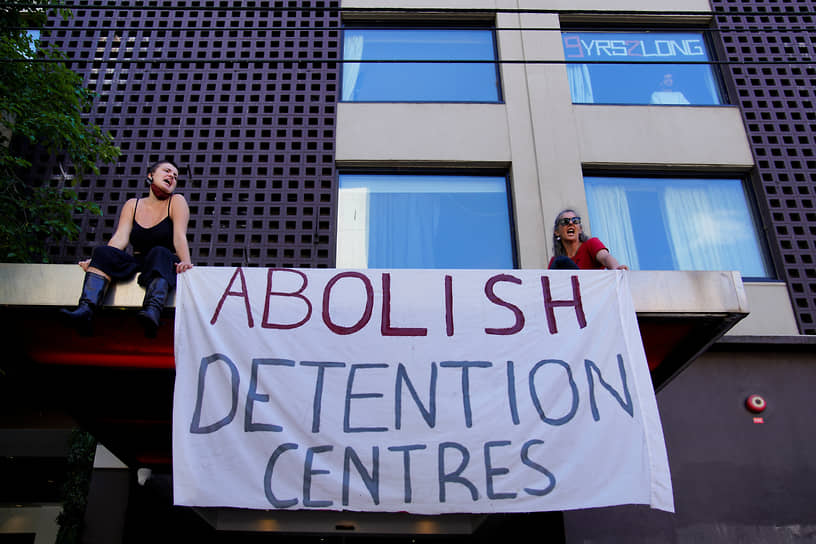 9YRS2LONG
ABOLISH
DETENTION
CENTRES